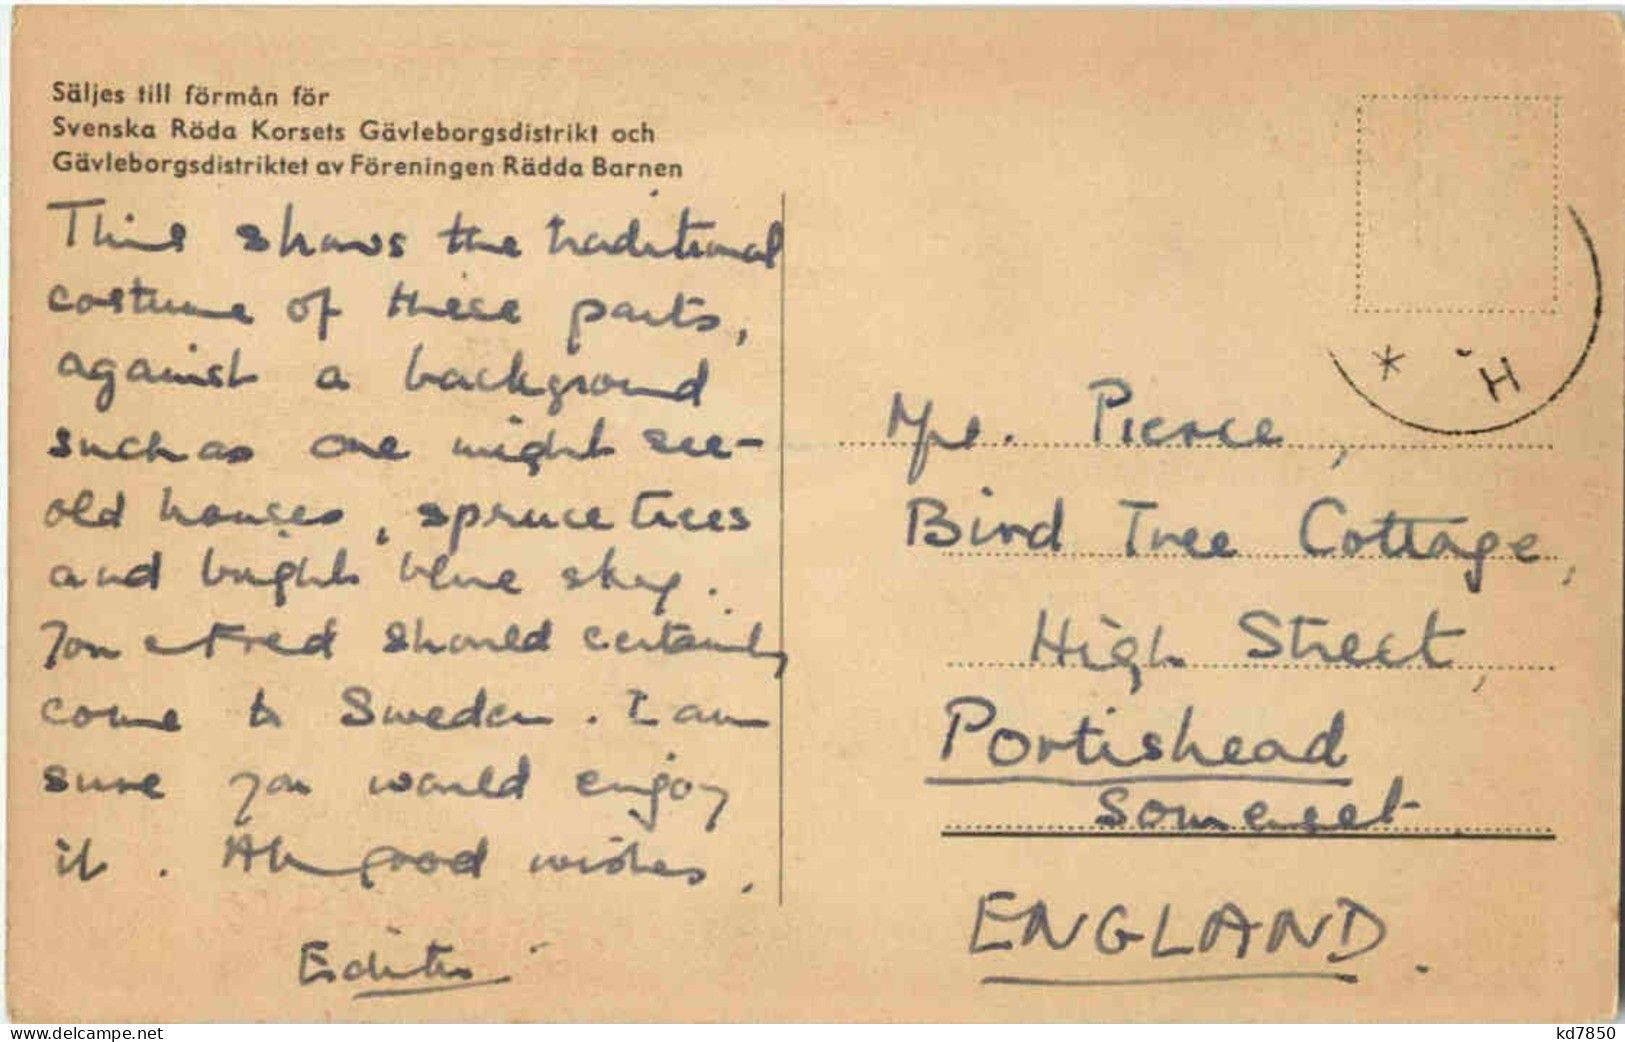 Säljes till förmån för
Svenska Röda Korsets Gävleborgsdistrikt och
Gävleborgsdistriktet av Föreningen Rädda Barnen
This shows the traditional
costume of these parts,
against a background
such as one might see-
old houses, spruce trees
and bright blue sky.
You & Fred should certainly
come to Sweden. I am
sure you would enjoy
it. All good wishes.
Edith
* H
Mrs. Pierce,
Bird Tree Cottage,
High Street,
Portishead
Somerset
ENGLAND.
www.delcampe.net
kd7850